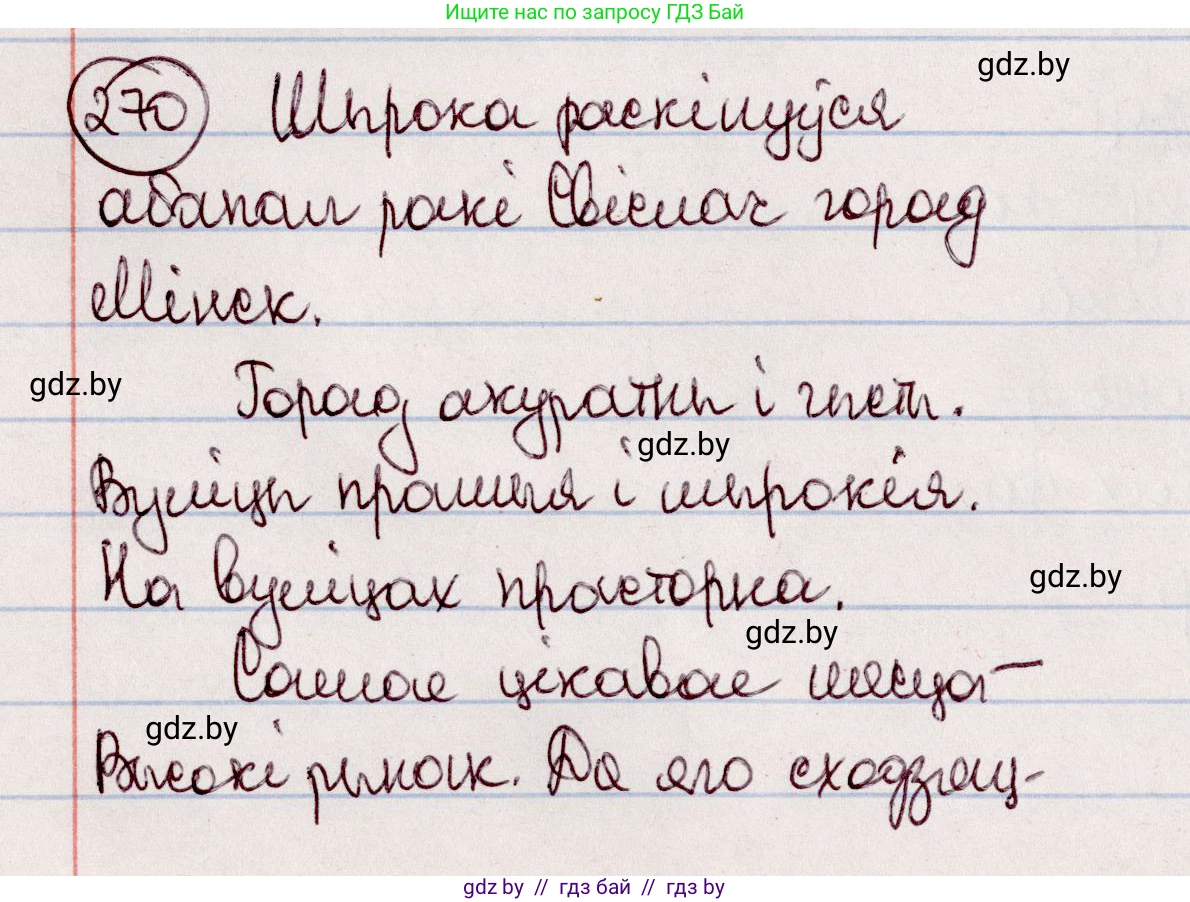 Ищите нас по запросу ГДЗ Бай
gdz.by
270 Шырока раскінуўся
абапал ракі Свіслач горад
Мінск.
gdz.by
Горад акуратны і чысты.
gdz.by
Вуліцы прамыя і шырокія.
На вуліцах прасторна.
gdz.by
gdz.by
Самае цікавае месца –
gdz.by
Высокі рынак. Да яго сходзяц-
gdz.by // гдз бай // гдз by